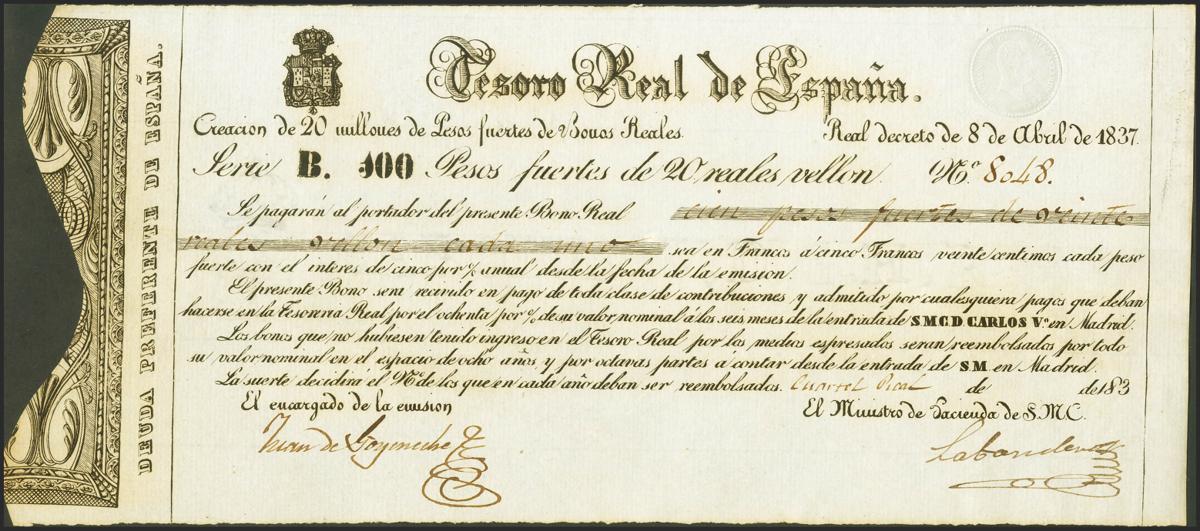 DEUDA PREFERENTE DE ESPAÑA.
Tesoro Real de España.
Creacion de 20 millones de Pesos fuertes de Bonos Reales.
Real decreto de 8 de Abril de 1837.
Serie B. 100 Pesos fuertes de 20 reales vellon. Nº 8048.
Se pagarán al portador del presente Bono Real cien pesos fuertes de veinte
reales vellon cada uno sea en Francos á cinco Francos veinte centimos cada peso
fuerte con el interes de cinco por % anual desde la fecha de la emision.
El presente Bono será recivido en pago de toda clase de contribuciones y admitido por cualesquiera pagos que deban
hacerse en la Tesoreria Real por el ochenta por % de su valor nominal á los seis meses de la entrada de S M C D CARLOS Vº en Madrid.
Los bonos que no hubiesen tenido ingreso en el Tesoro Real por los medios espresados seran reembolsados por todo
su valor nominal en el espacio de ocho años, y por octavas partes á contar desde la entrada de S M. en Madrid.
La suerte decidirá el Nº de los que en cada año deban ser reembolsados. Cuartel Real de de 183
El encargado de la emision
El Ministro de Hacienda de S.M.C.
Juan de Goyeneche
Labandero